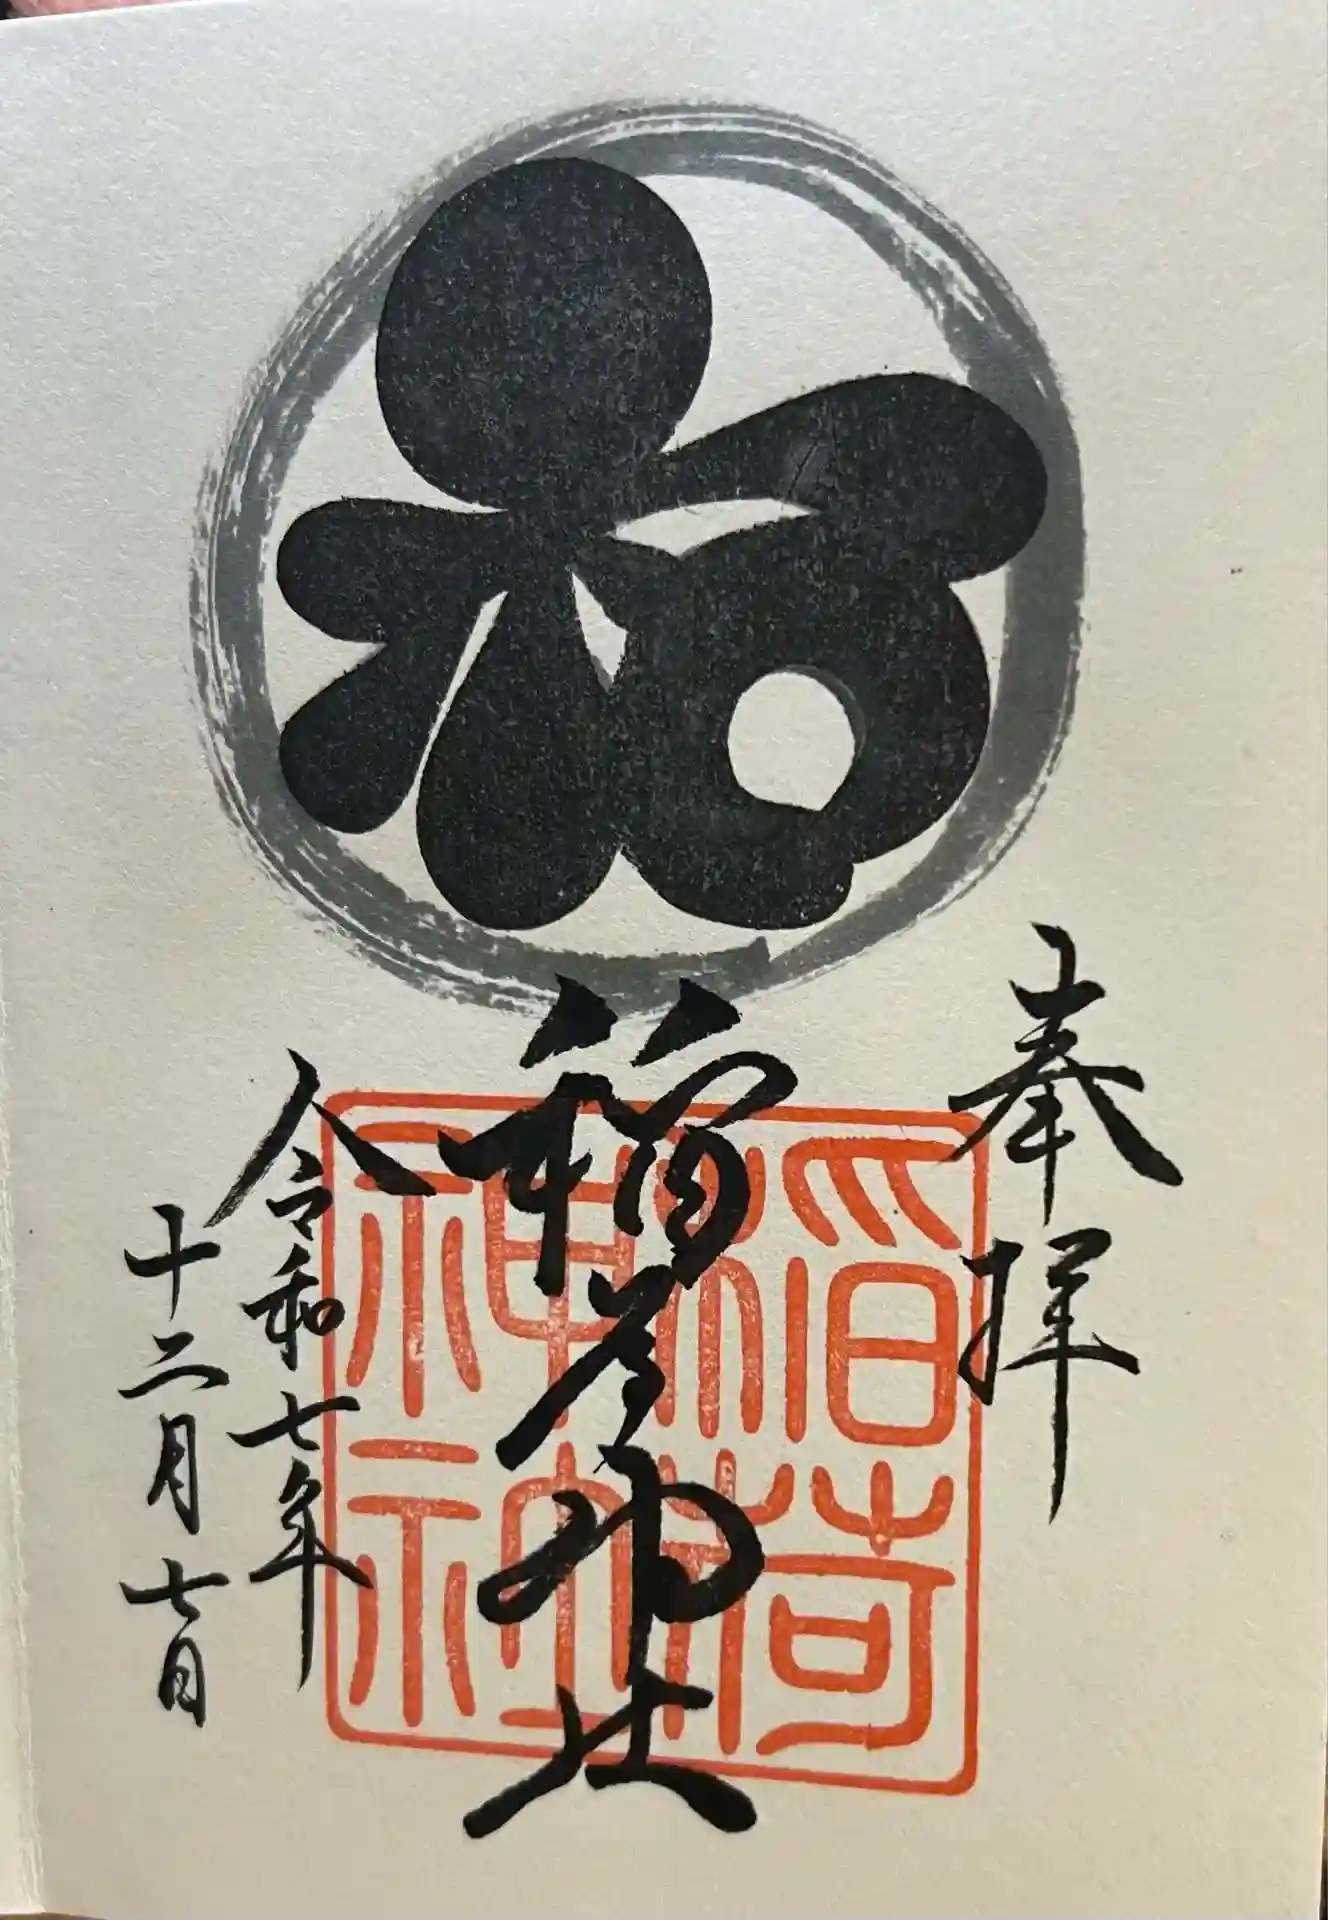 祐
奉拝
稲荷神社
令和七年
十二月七日
稲荷
神社